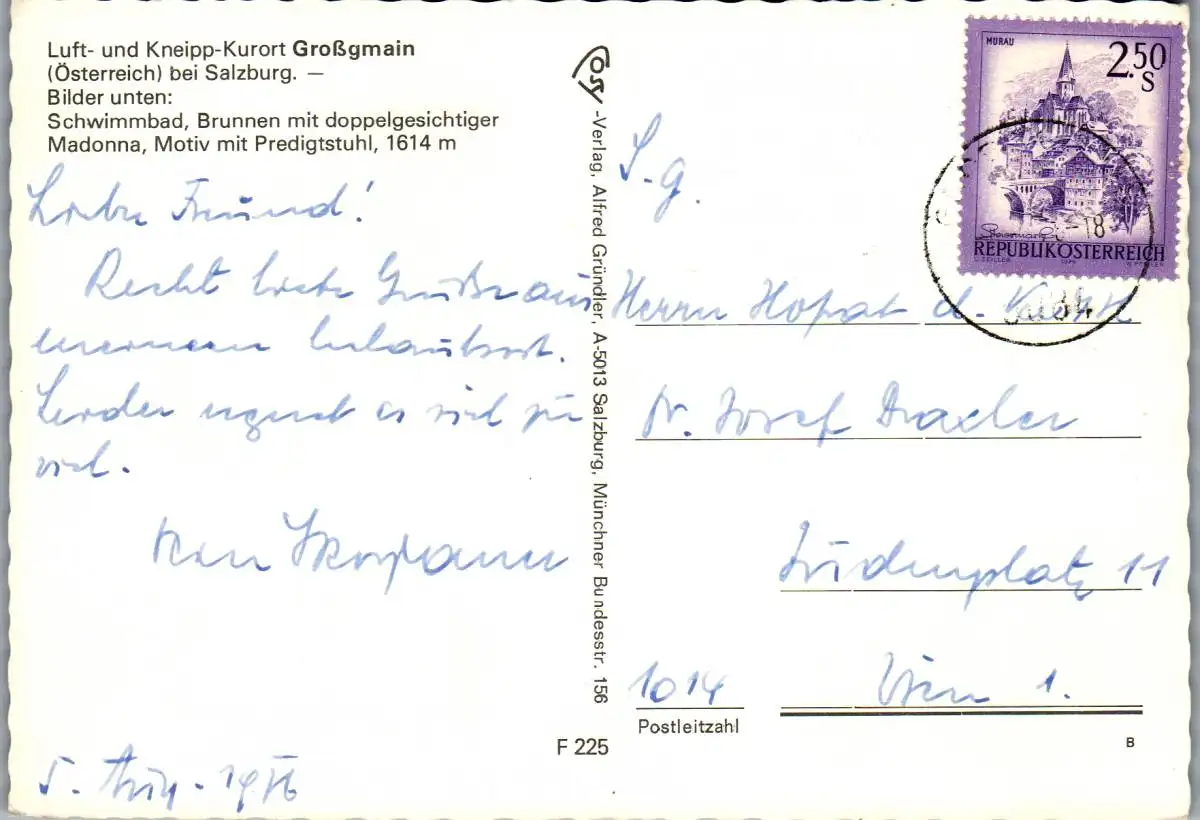 Luft- und Kneipp-Kurort Großgmain
(Österreich) bei Salzburg. —
Bilder unten:
Schwimmbad, Brunnen mit doppelgesichtiger
Madonna, Motiv mit Predigtstuhl, 1614 m
Liebe Freund!
Recht liebe Grüße aus
meinem Urlaubsort.
Leider regnet es viel zu
viel.
5. Aug. 1976
-Verlag, Alfred Gründler, A-5013 Salzburg, Münchner Bundesstr. 156
F 225
MURAU
2.50
S
Steiermark
REPUBLIK ÖSTERREICH
-18
S.g.
Herrn Hofrat d.
Dr. Josef Draxler
Judenplatz 11
1014 Wien 1.
Postleitzahl
B